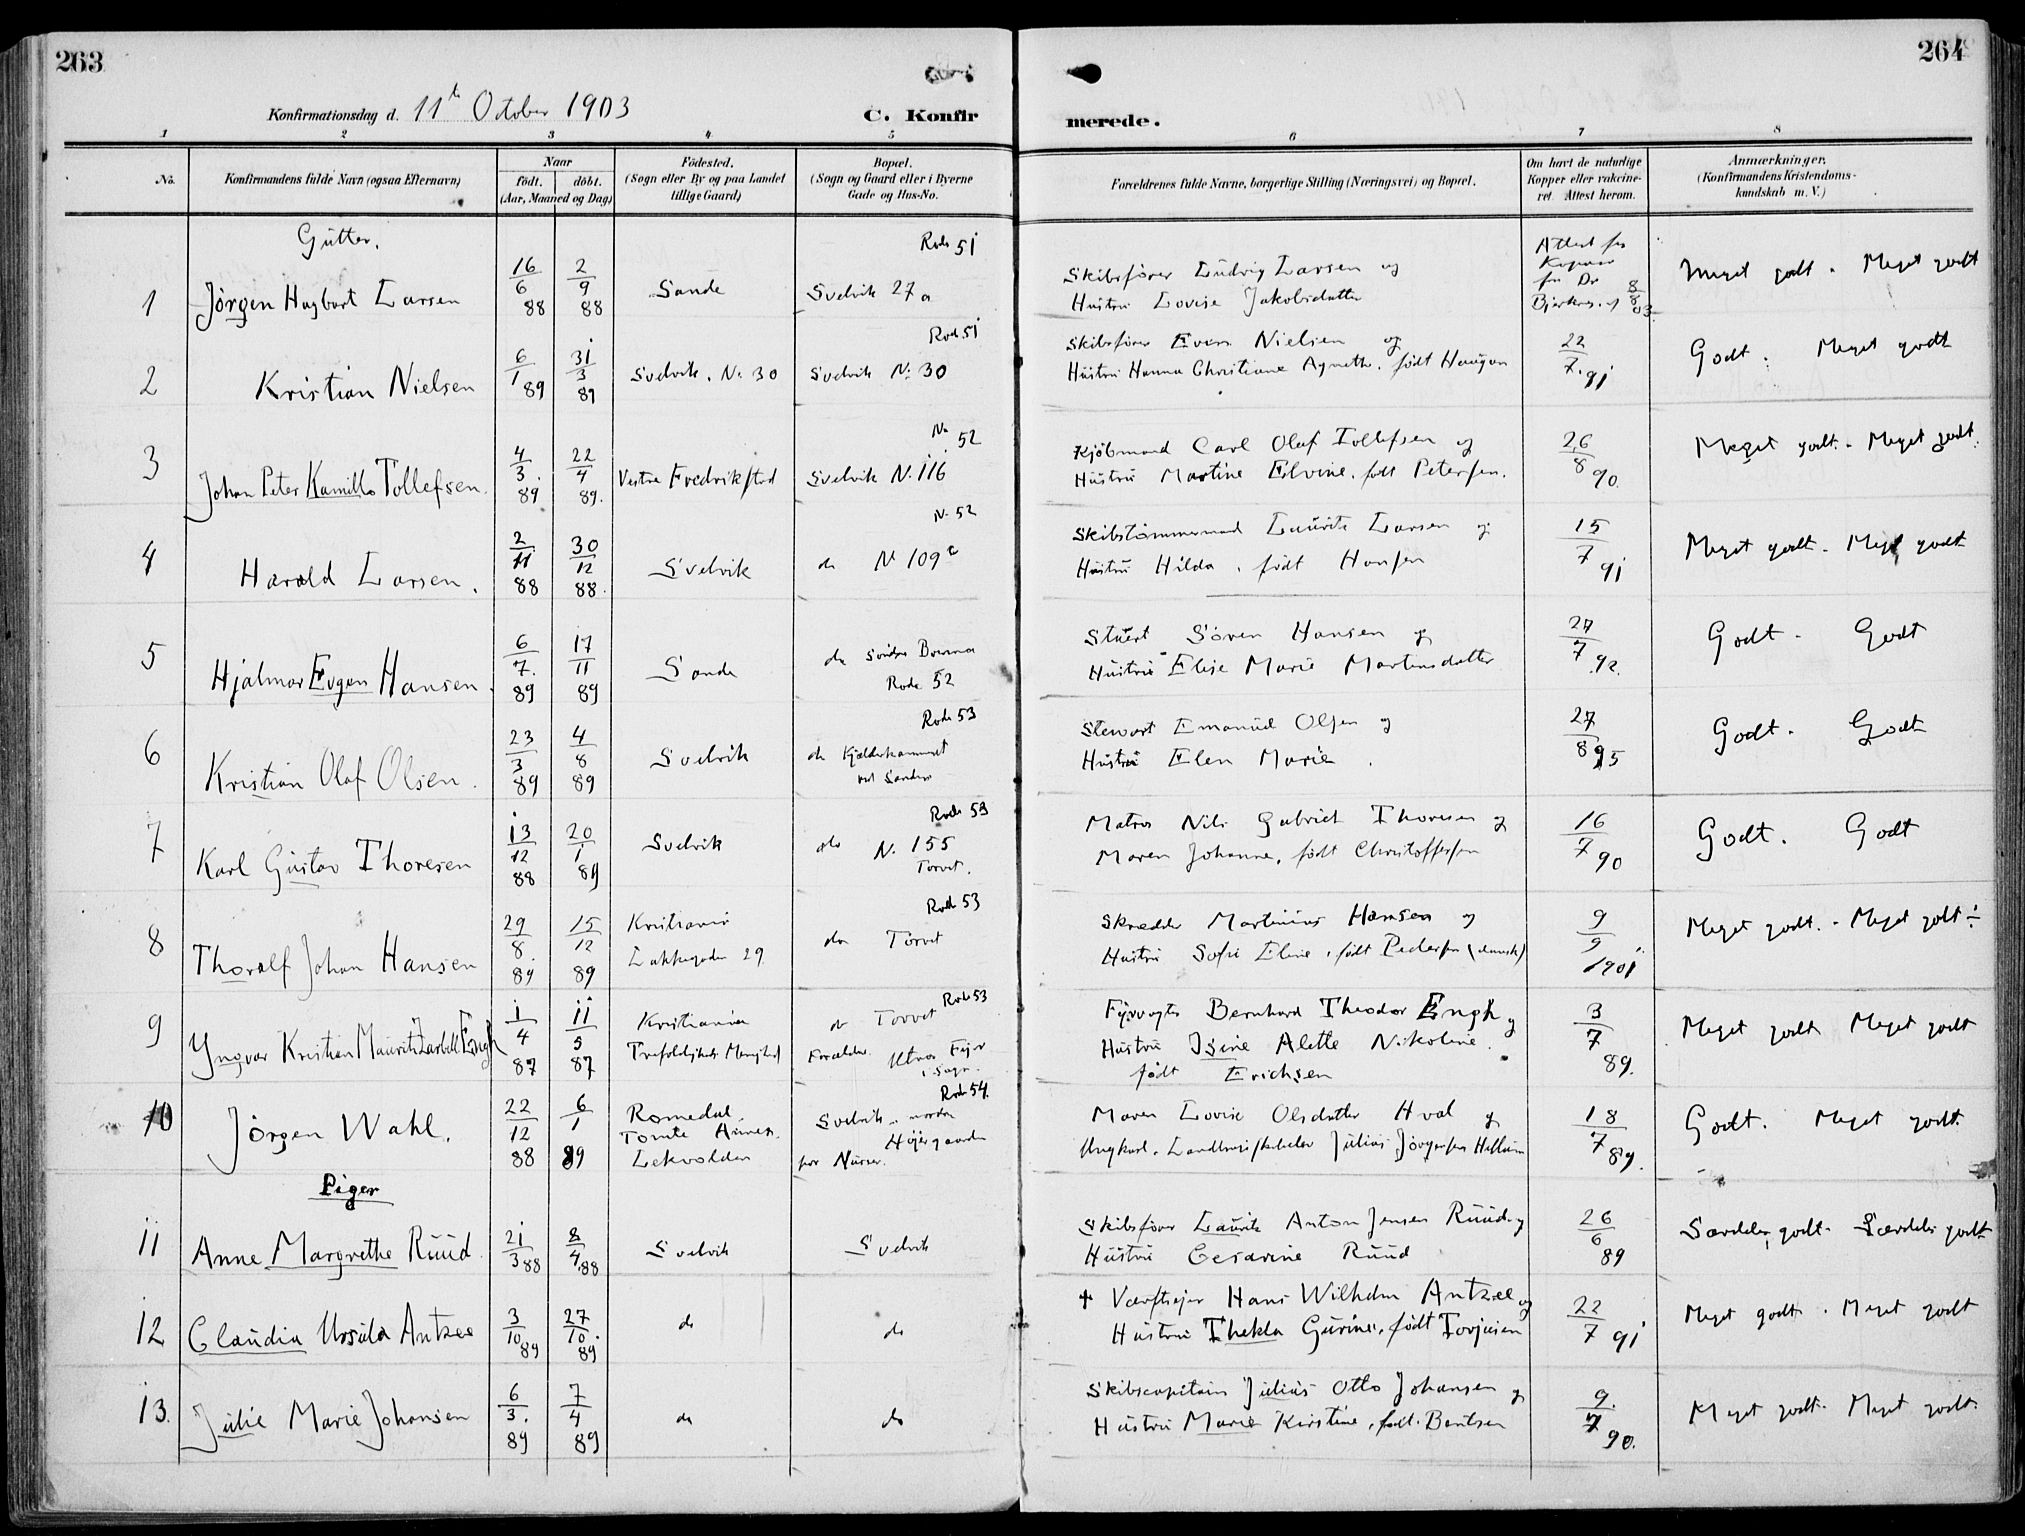 263
264
Konfirmationsdag d. 11te October 1903
C. Konfirmerede.
1 2 3 4 5 6 7 8
No.
Konfirmandens fulde Navn (ogsaa Efternavn)
Naar
født. døbt.
(Aar, Maaned og Dag)
Fødested.
(Sogn eller By og paa Landet
tillige Gaard)
Bopæl.
(Sogn og Gaard eller i Byerne
Gade og Hus-No.
Forældrenes fulde Navne, borgerlige Stilling (Næringsvei) og Bopæl.
Om havt de naturlige
Kopper eller vakcine-
ret. Attest herom.
Anmærkninger.
(Konfirmandens Kristendoms-
kundskab m. V.)
Gutter.
1 Jörgen Hagbart Larsen 16/6 88 2/9 88 Sande Svelvik 27a Rode 51
Skibsfører Ludvig Larsen og
Hustru Lovise Jakobsdatter
Attest for
Kopper
fra Dr
8/8 03.
Meget godt. Meget godt
2 Kristian Nielsen 6/1 89 31/3 89 Svelvik. No 30 Svelvik No 30 Rode 51
Skibsfører Even Nielsen og
Hustru Hanna Christiane Agnethe, født Haugan
22/7 91
Godt. Meget godt
3 Johan Peter Kamillo Tollefsen. 4/3 89 22/4 89. Vestre Fredrikstad Svelvik N. 116 No 52
Kjöbmand Carl Olaf Tollefsen og
Hustru Martine Elvine. født Petersen.
26/8 90.
Meget godt. Meget godt.
4 Harald Larsen. 2/11 88 30/12 88. Svelvik do No 109c N. 52
Skibstømmermand Laurits Larsen og
Hustru Hilda, født Hansen
15/7 91
Meget godt. Meget godt
5 Hjalmar Evgen Hansen. 6/7. 89 17/11 89 Sande do Søndre
Rode 52
Stuert Sören Hansen og
Hustru Elise Marie Martinsdatter
27/7 92.
Godt. Godt
6 Kristian Olaf Olsen. 23/3 89 4/8 89 Svelvik do Rode 53
Stewart Emanuel Olsen og
Hustru Elen Marie.
27/8 95
Godt. Godt
7 Karl Gustav Thoresen 13/12 88 20/1 89 Svelvik do N. 155 Rode 53
Torvet.
Matros Nils Gabriel Thoresen og
Maren Johanne, født Christoffersen
16/7 90
Godt. Godt
8 Thoralf Johan Hansen 29/8. 89 15/12 89 Kristiania
Lakkegaden 29
do Torvet Rode 53
Skrædder Martinius Hansen og
Hustru Sofie Eline, født Pedersen (dansk)
9/9 1901
Meget godt. - Meget godt ÷
9 Yngvar Kristian Maurits Engh 1/4 87 11/5 87 Kristiania
do Torvet Rode 53
Fyrvogter Bernhard Theodor Engh og
Hustru Isine Alette Nikoline.
født Erichsen
3/7 89.
Meget godt Meget godt
10 Jörgen Wahl. 22/12 88 6/1 89 Romedal.
Tomte
Svelvik. Rode 54
Maren Lovise Olsdatter Hval og
Ungkarl. Julius Jörgensen
18/7 89.
Godt. Meget godt.
Piger
11 Anne Margrethe Ruud 21/3 88 8/4 88 Svelvik Svelvik
Skibsfører Laurits Anton Jensen Ruud og
Hustru Cesarine Ruud
26/6 89
Særdeles godt. Særdeles godt
12 Claudia Ursula Antzee 3/10 89 27/10. 89 do do
† Værftseier Hans Wilhelm Antzee og
Hustru Thekla Gurine, født Torjusen
22/7 91
Meget godt. Meget godt
13. Julie Marie Johansen 6/3. 89 7/4 89 do do
Skibscapitain Julius Otto Johansen og
Hustru Marie Kirstine, født Bentsen
9/7 90.
Meget godt. Meget godt.